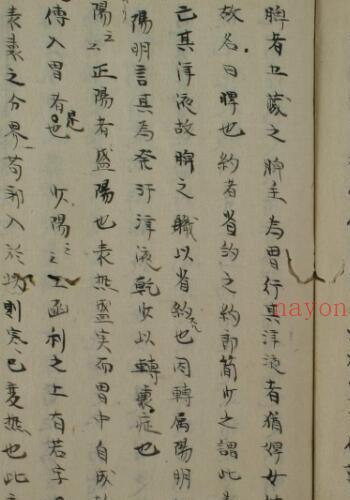 脾者五藏之脾主為胃行其津液者猶婢女
故名曰脾也約者省約之約即簡少之謂此
己其津液故脾之職以省約也因轉属陽明
陽明言其為発汗津液乾少以轉裏症也
陽 正陽者盛陽也表熱盛実而胃中自成
傳入胃者是也 少陽之上函利之上有若字
表裏之分界苟邪入於此則寒已変熱也此
nayon